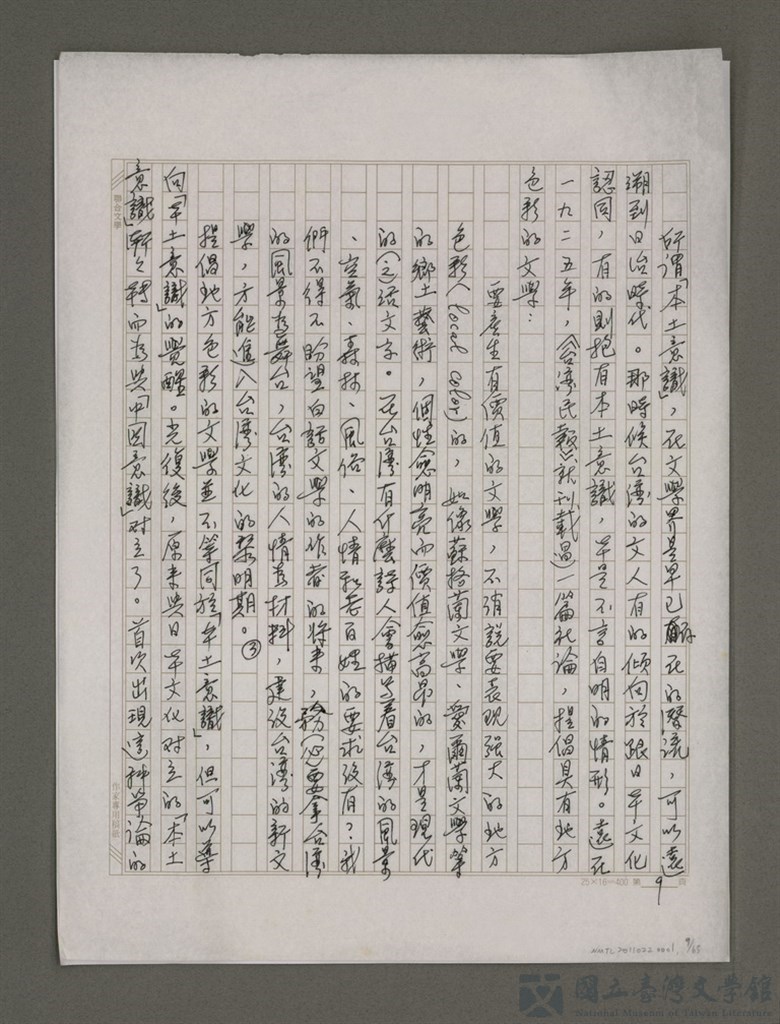 所謂「本土意識」，在文學界是早已存在的潛流，可以遠
溯到日治時代。那時候台灣的文人有的傾向於跟日本文化
認同，有的則抱有本土意識，早是不言自明的情形。遠在
一九二五年，《台灣民報》就刊載過一篇社論，提倡具有地方
色彩的文學：
要產生有價值的文學，不消說要表現強大的地方
色彩（local color）的，如像蘇格蘭文學、愛爾蘭文學等
的鄉土藝術，個性愈明亮而價值愈高昂的，才是現代
的（文）語文字。在台灣有什麼詩人會描寫着台灣的風景
、空氣、森林、風俗、人情和老百姓的要求沒有？我
們不得不盼望白話文學的作者的將來，務必要拿台灣
的風景為舞台，台灣的人情為材料，建設台灣的新文
學，方能進入台灣文化的黎明期。③
提倡地方色彩的文學並不等同於「本土意識」，但可以導
向「本土意識」的覺醒。光復後，原來與日本文化對立的「本土
意識」輾轉而為與「中国意識」对立了。首次出現這种爭論的
聯合文學
作家專用稿紙
25×16=400 第 9 頁
NMTL 2011022 0001 9/65
國立臺灣文學館
National Museum of Taiwan Literature